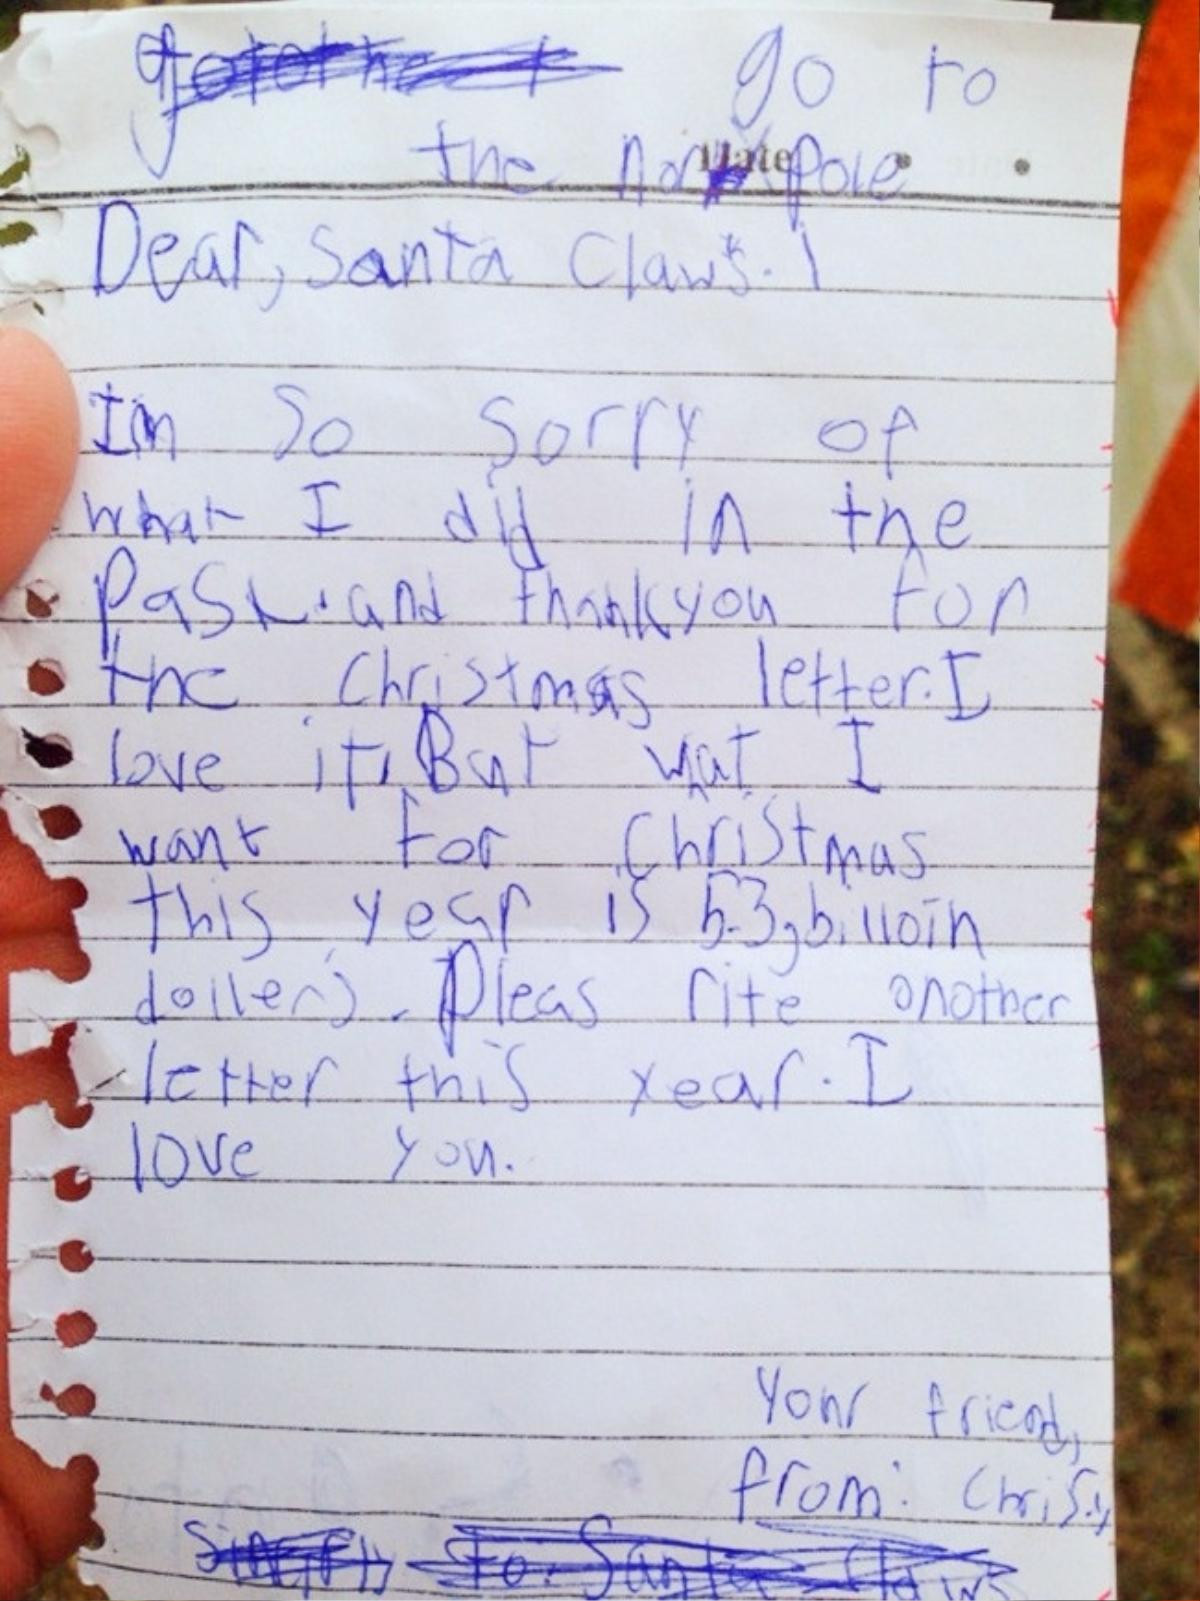 go to
the nor pole
Date
Dear, Santa Claws.
Im so sorry of
what I did in the
Past. and thankyou for
the Christmas letter. I
love it, But wat I
want for Christmas
this year is 5.3, billoin
dollers. Pleas rite onother
letter this year. I
love you.
Your friend,
from: Chris.y
to: Santa Claws